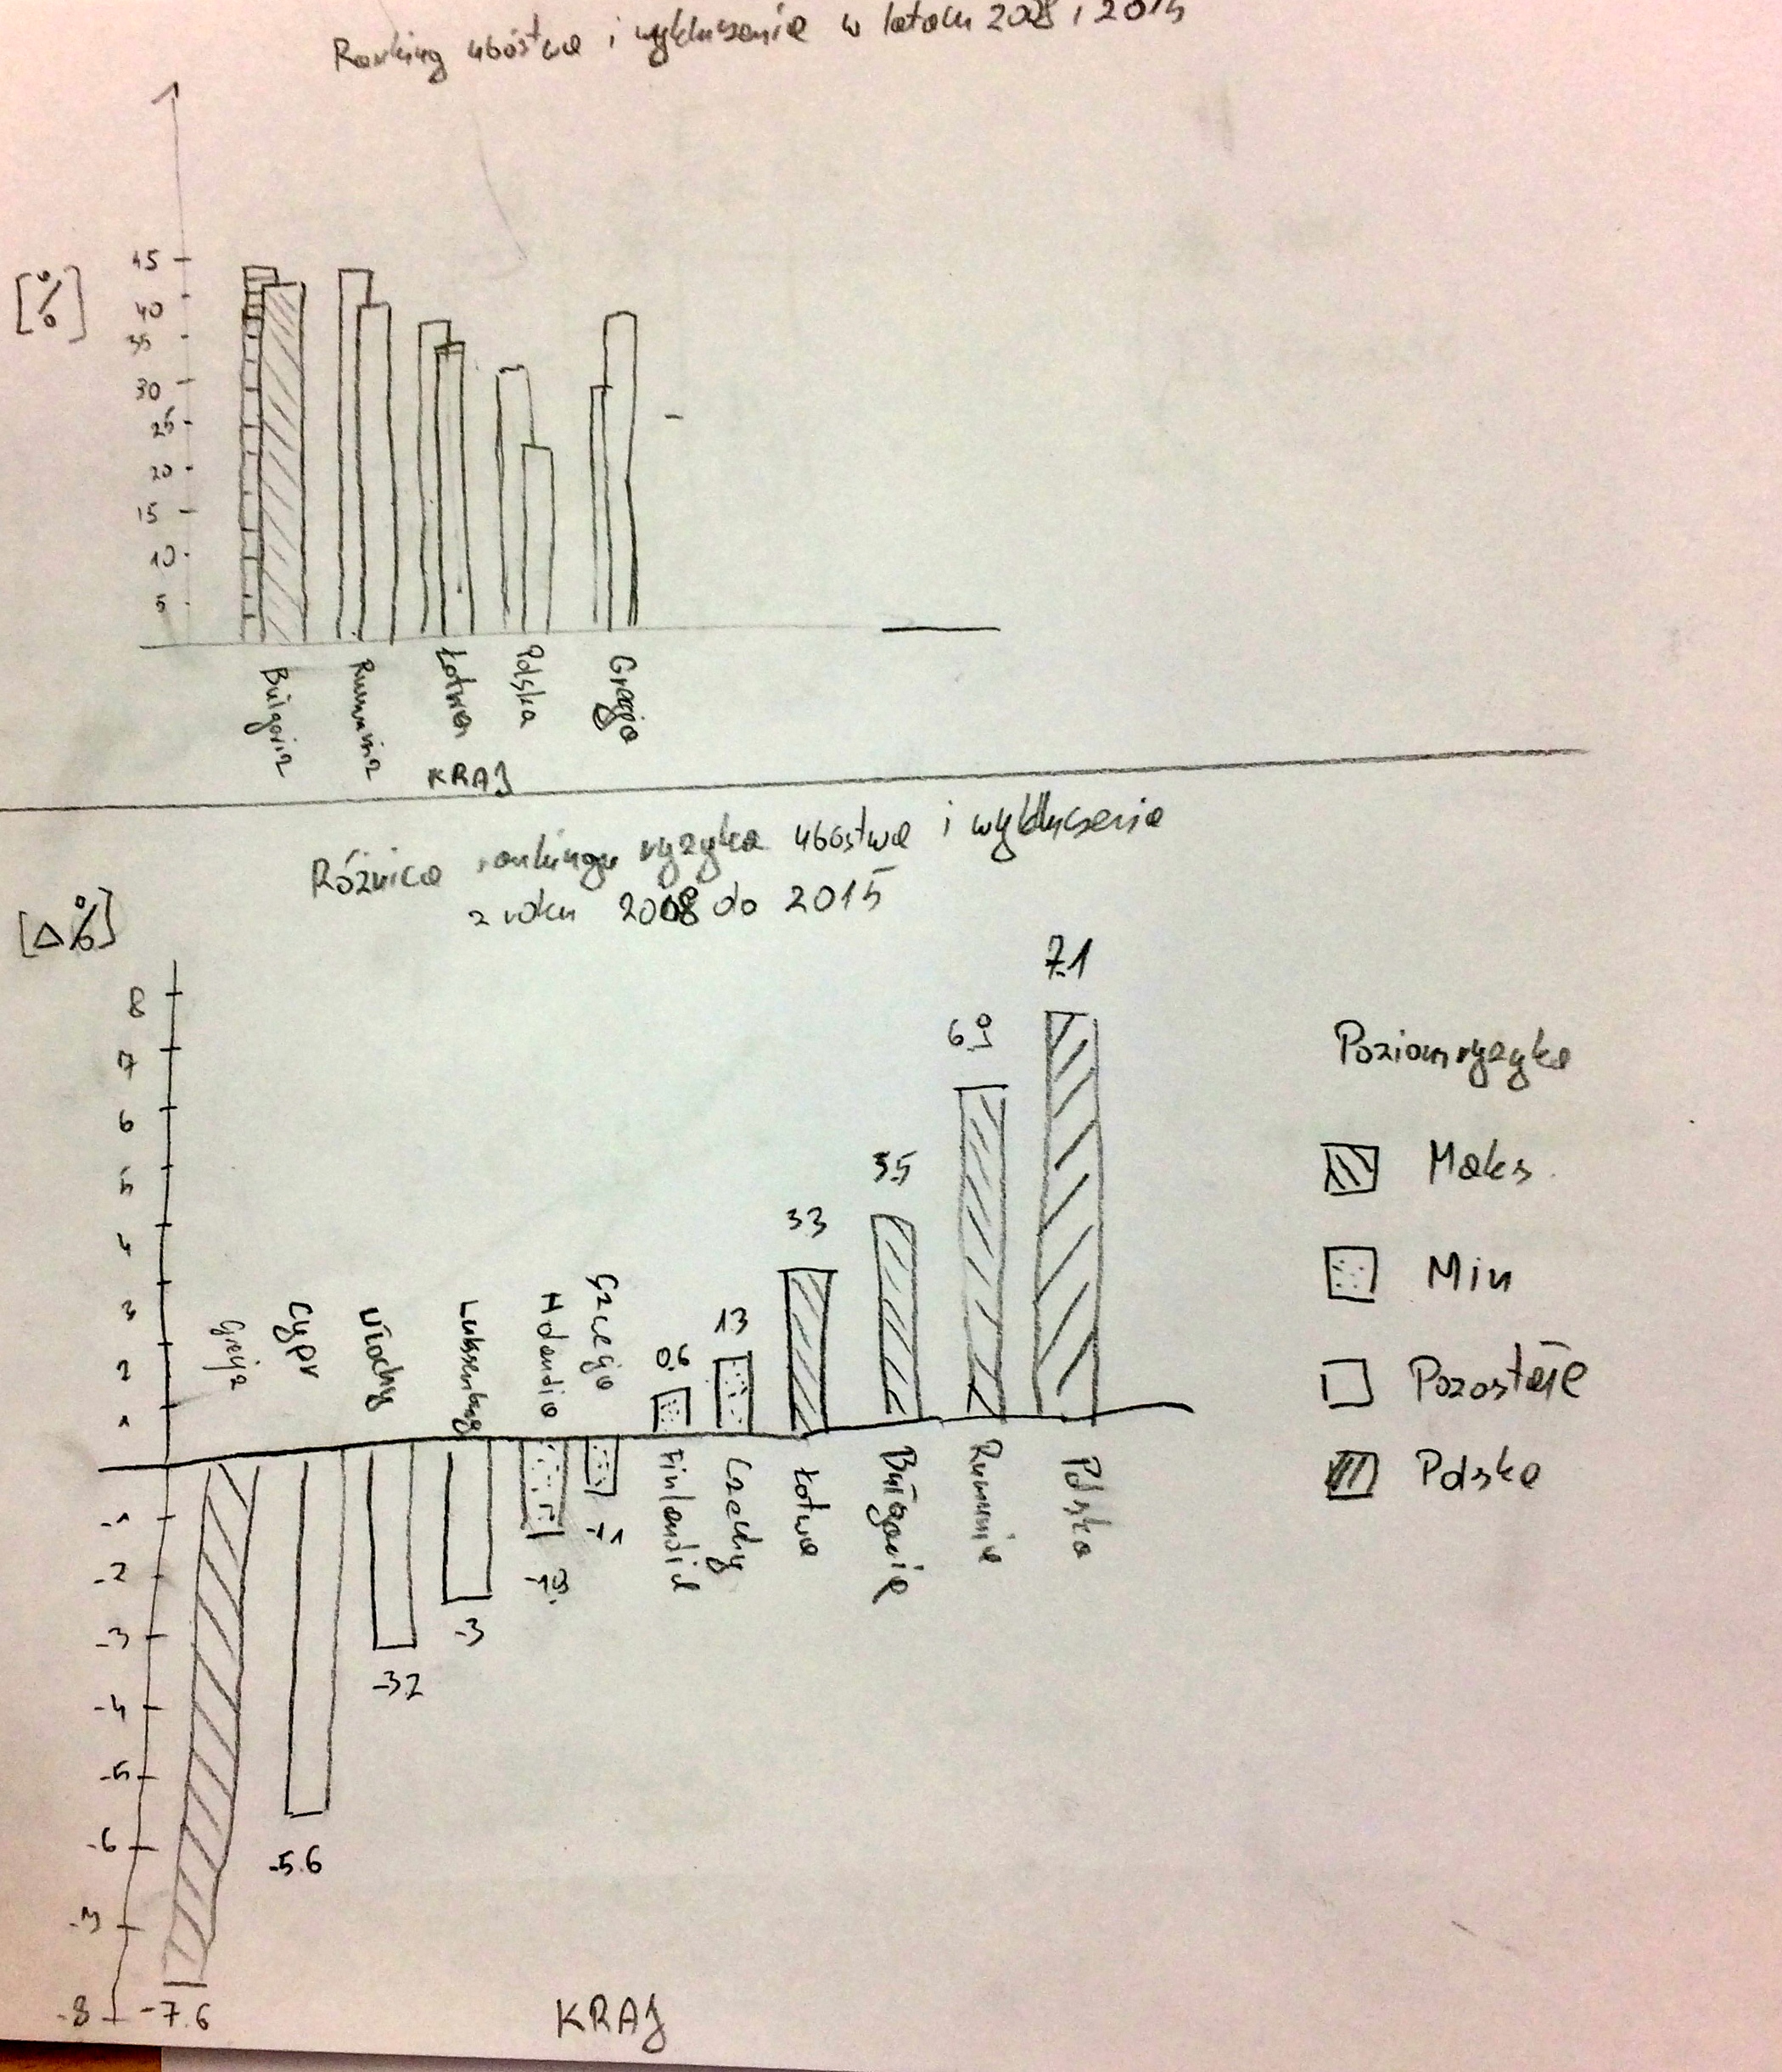 Ranking ubóstwa i wykluczenia w latach 2008 i 2015
[%]
45
40
35
30
25
20
15
10
5
Bułgaria
Rumunia
Łotwa
Polska
Grecja
KRAJ
Różnica rankingu ryzyka ubóstwa i wykluczenia
z roku 2008 do 2015
[Δ%]
8
7
6
5
4
3
2
1
-1
-2
-3
-4
-5
-6
-7
-8
Grecja
Cypr
Włochy
Luksemburg
Holandia
Szwecja
Finlandia
Czechy
Łotwa
Bułgaria
Rumunia
Polska
-7.6
-5.6
-3.2
-3
-1.1
0.6
1.3
3.3
3.5
7.1
KRAJ
Poziom ryzyka
Maks.
Min
Pozostałe
Polska